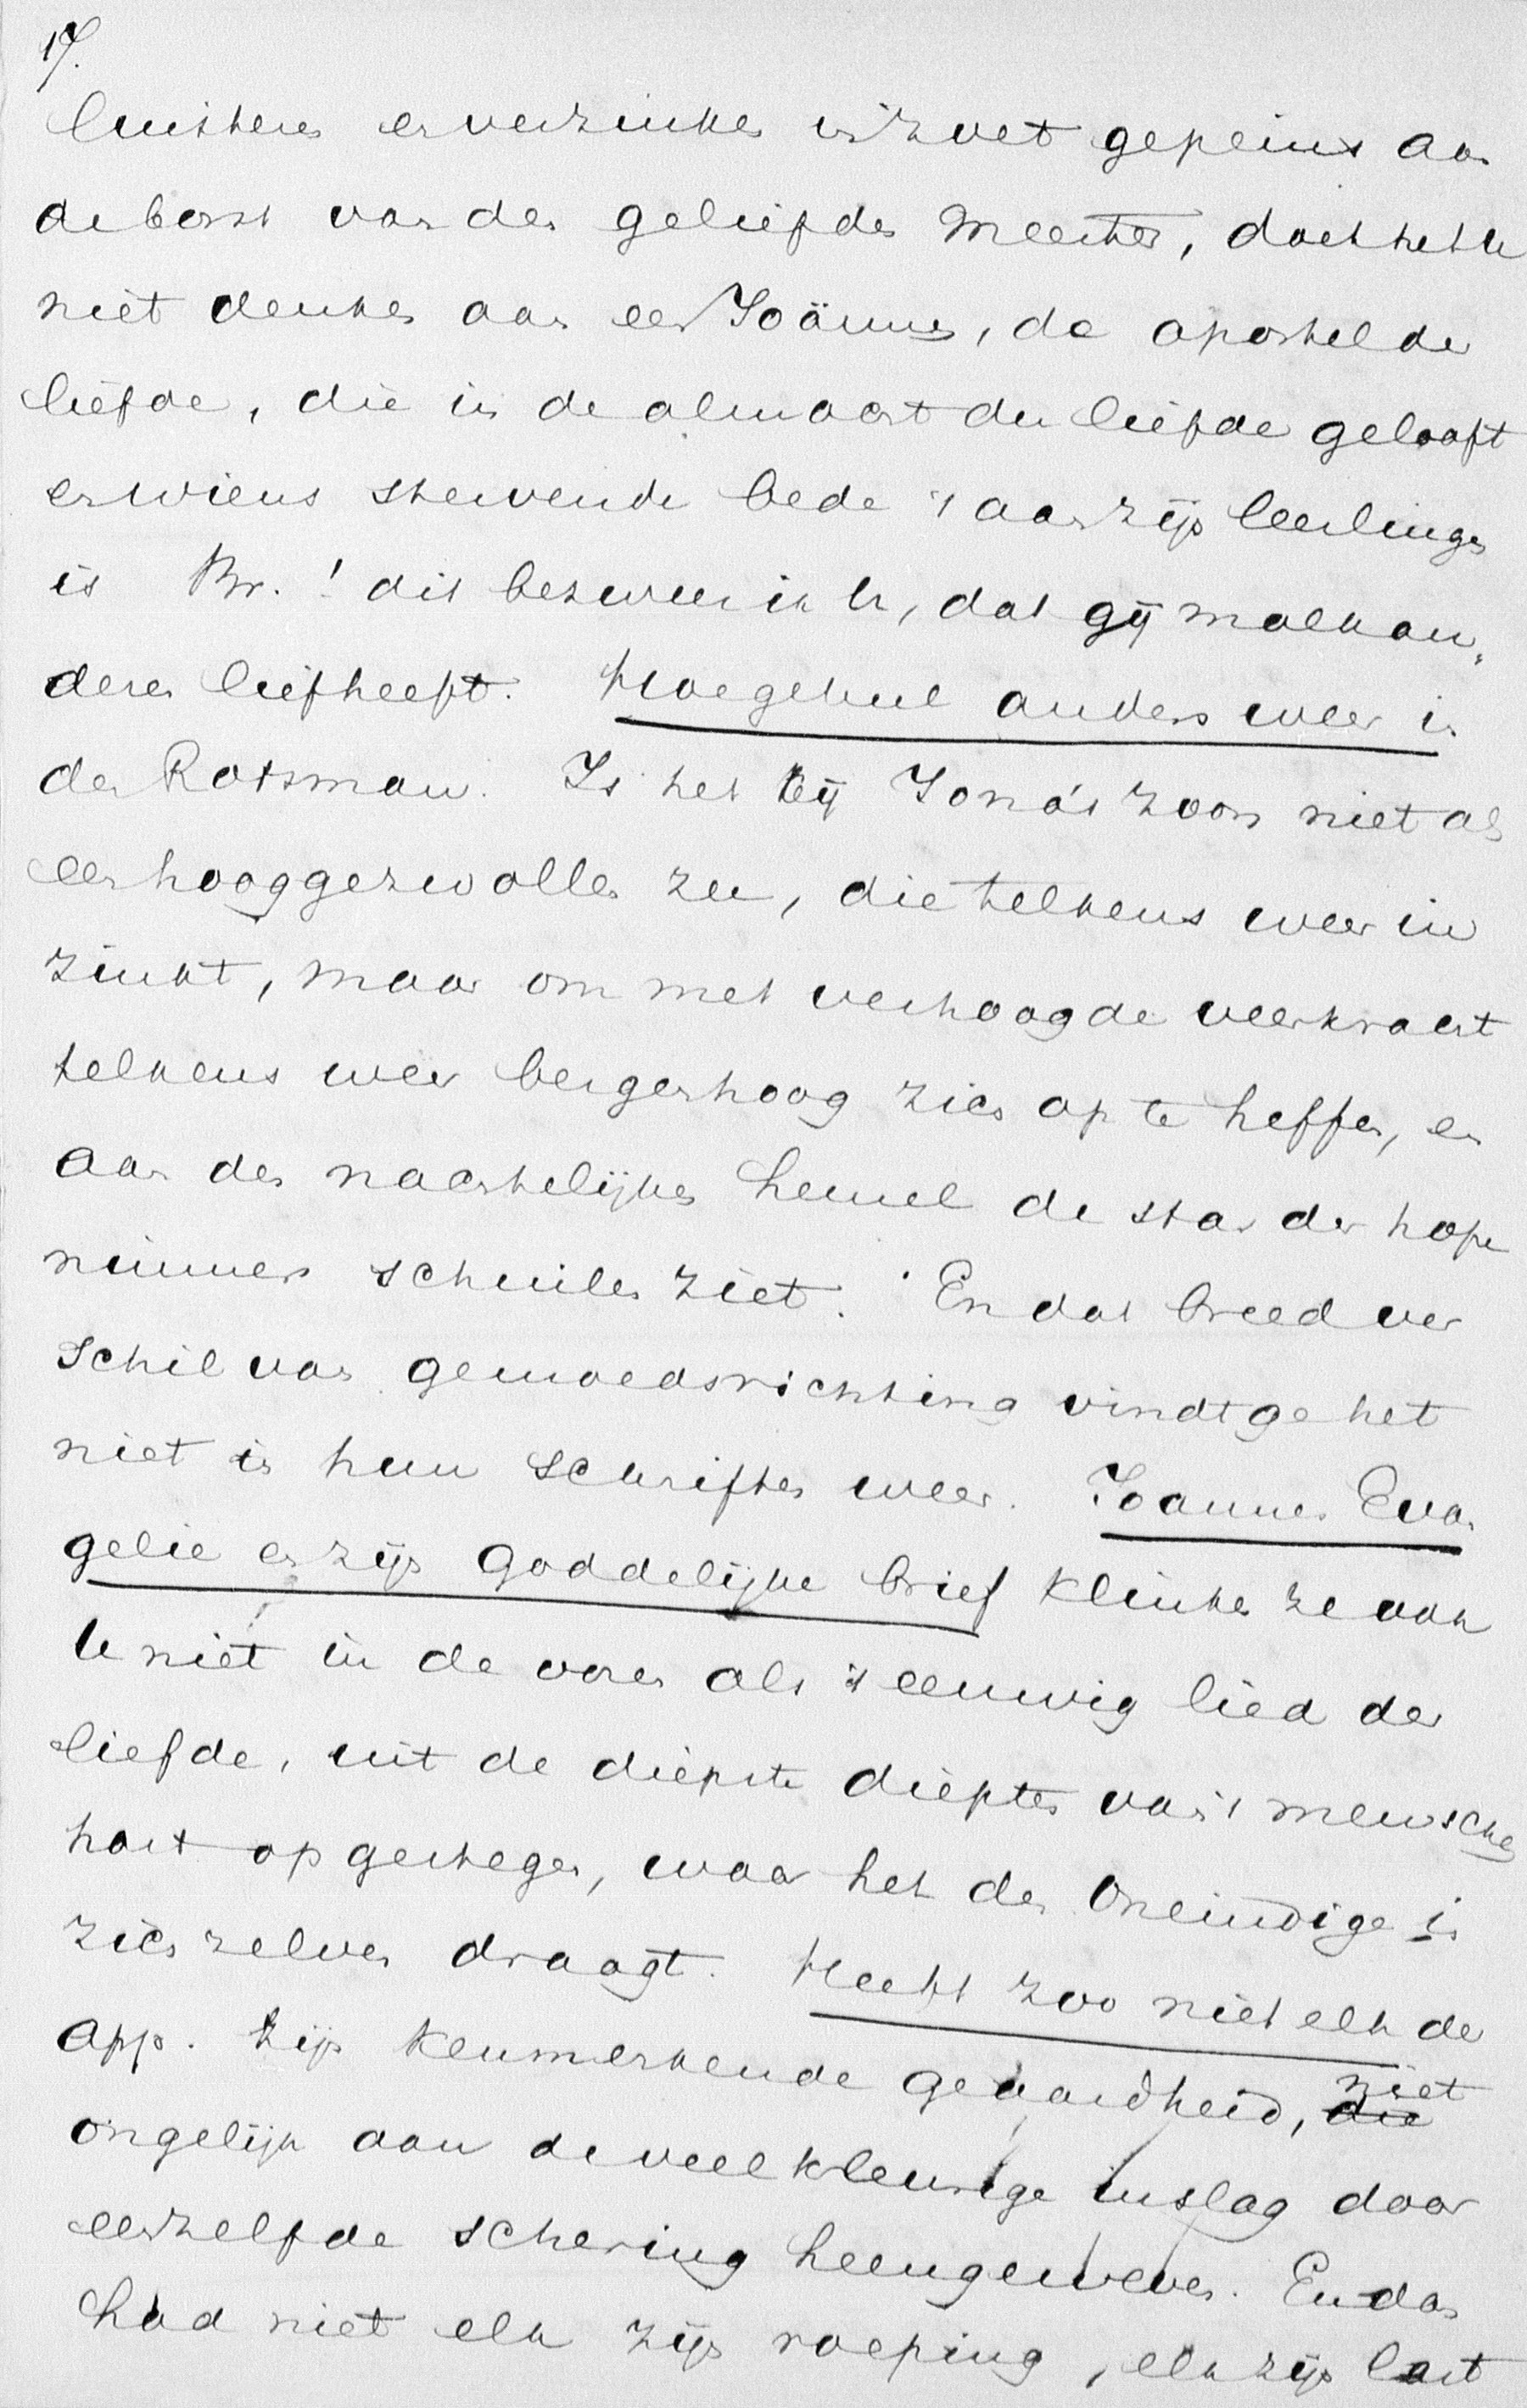 17.
luisteren en verzinken in zoet gepeins aan
de borst van den geliefden Meester, doet het U
niet denken aan een Joännes, de apostel der
liefde, die in de almacht der liefde gelooft
en wiens stervende bede 't aan zijn leerlingen
is Br.! dit bezweer ik U, dat gij malkan„
deren liefheeft. Hoe geheel anders weer in
den Rotsman. Is het bij Jona's zoon niet als
een hooggezwollen zee, die telkens weer in
zinkt, maar om met verhoogde veerkracht
telkens weer bergenhoog zich op te heffen, en
aan den nachtelijken hemel de star der hope
nimmer schuilen ziet. En dat breed ver
schil van gemoedsrichting vindt ge het
niet in hun schriften weer. Joannes Evan
gelie en zijn Goddelijke brief klinken ze ook
U niet in de ooren als 't eeuwig lied der
liefde, uit de diepste diepten van 't menschen
hart opgestegen, waar het den Oneindige in
zich zelven draagt. Heeft zoo niet elk der
app. zijn kenmerkende geaardheid, ~~die~~ niet
ongelijk aan de veelkleurige inslag door
eenzelfde schering heengeweven. En dan
had niet elk zijn roeping, elk zijn last